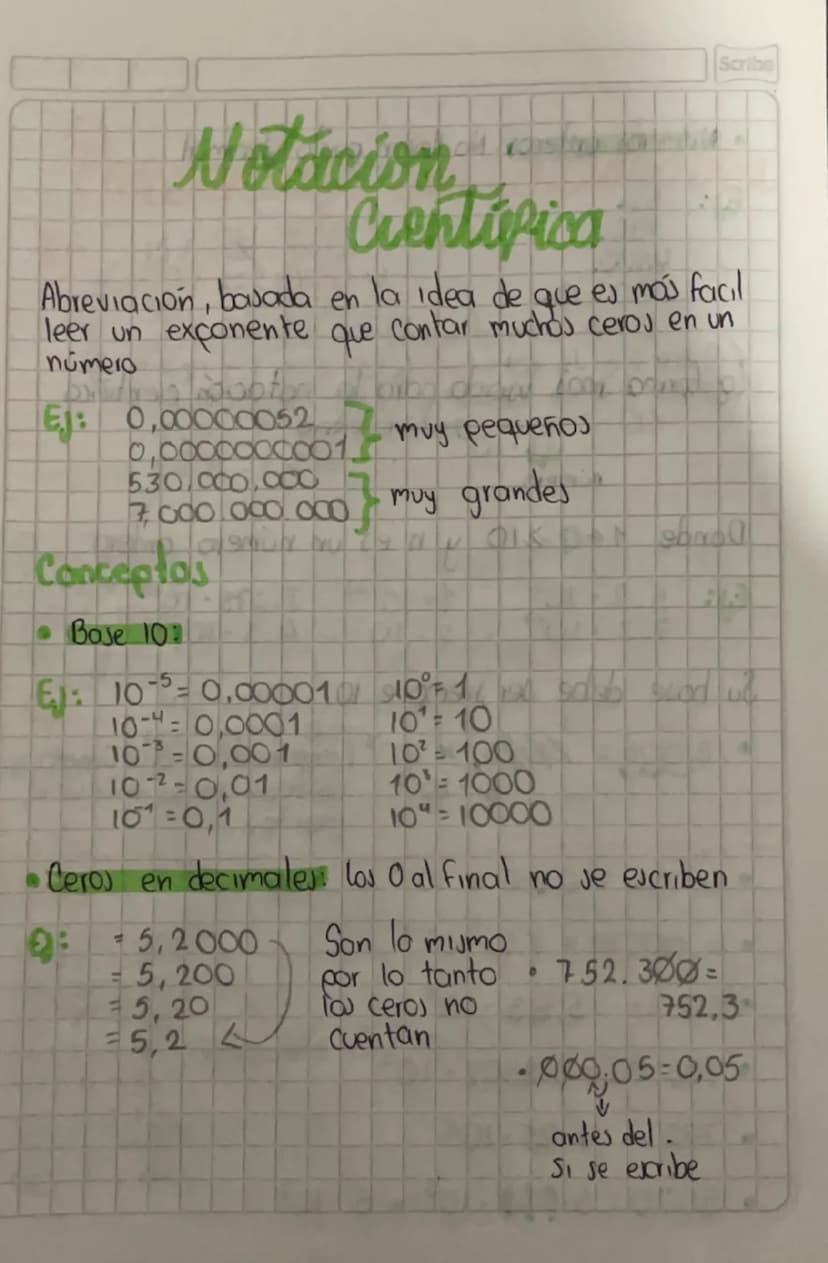 Scribe
Notación
Científica
Abreviación, basada en la idea de que es más facil
leer un exponente que contar muchos ceros en un
número
Ej: 0,00000052
0,0000000001 } muy pequeños
530.000.000
7,000.000.000 } muy grandes
Conceptos
• Base 10:
Ej: 10⁻⁵ = 0,00001 10⁰ = 1
10⁻⁴ = 0,0001 10¹ = 10
10⁻³ = 0,001 10² = 100
10⁻² = 0,01 10³ = 1000
10⁻¹ = 0,1 10⁴ = 10000
• Ceros en decimales: los 0 al final no se escriben
Ej: = 5,2000 Son lo mismo
= 5,200 por lo tanto • 752.300 =
= 5,20 los ceros no 752,3
= 5,2 cuentan
• 000,05 = 0,05
antes del .
si se escribe